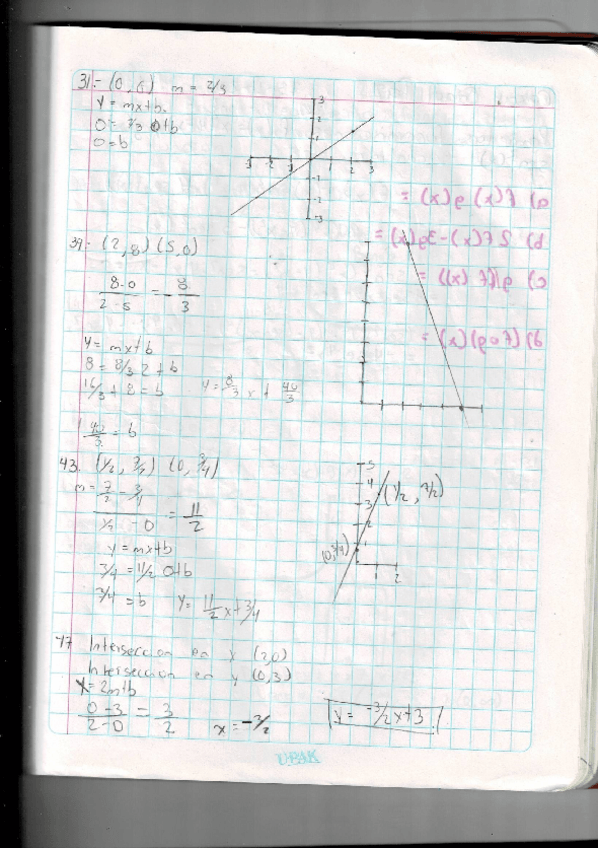 31.- (0,0) m = 2/3
y = mx+b
0 = 2/3 0+b
0 = b
39.- (2,8) (5,0)
8-0 / 2-5 = - 8/3
y = mx+b
8 = 8/3 2 + b
16/3 + 8 = b y = 8/3 x + 40/3
40/3 = b
43. (1/2, 7/2) (0, 3/4)
m = 7/2 - 3/4 / 1/2 - 0 = 11/2
y = mx+b
3/4 = 11/2 0+b
3/4 = b y = 11/2 x + 3/4
(1/2, 7/2)
(0,3/4)
47 Interseccion en x (2,0)
Interseccion en y (0,3)
x = 2m+b
0-3 / 2-0 = 3/2 x = -3/2
y = -3/2x+3